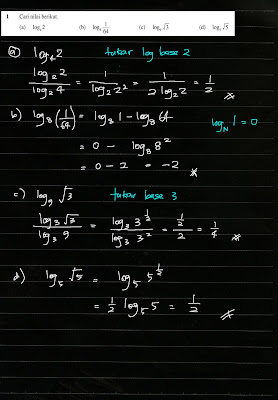 1 Cari nilai berikut.
(a) log₄ 2 (b) log₈ 1/64 (c) log₉ √3 (d) log₅ √5
a) log₄ 2 tukar log base 2
log₂ 2 / log₂ 4 = 1 / log₂ 2² = 1 / 2 log₂ 2 = 1/2
b) log₈ (1/64) = log₈ 1 - log₈ 64 log_N 1 = 0
= 0 - log₈ 8²
= 0 - 2 = -2
c) log₉ √3 tukar base 3
log₃ √3 / log₃ 9 = log₃ 3^(1/2) / log₃ 3² = 1/2 / 2 = 1/4
d) log₅ √5 = log₅ 5^(1/2)
= 1/2 log₅ 5 = 1/2